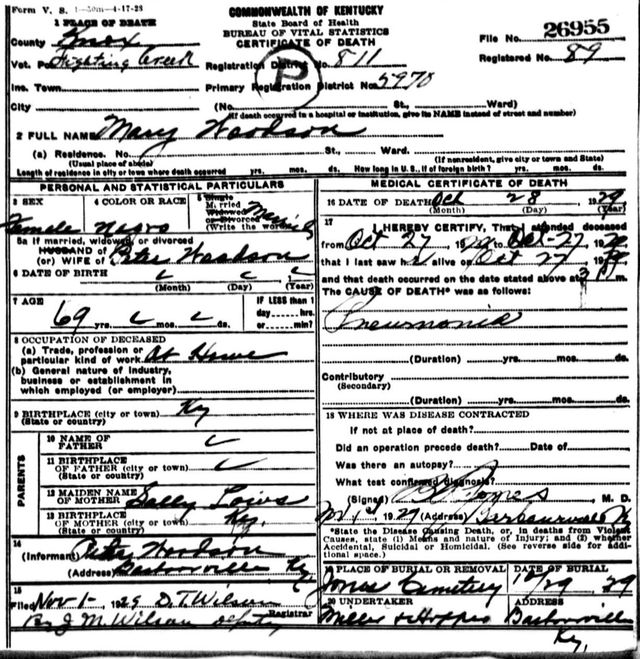 Form V. S. 1-50m-4-17-28
COMMONWEALTH OF KENTUCKY
State Board of Health
BUREAU OF VITAL STATISTICS
CERTIFICATE OF DEATH
1 PLACE OF DEATH
County Knox
File No. 26955
Registered No. 89
Vot. Pct Fighting Creek
Registration District No. 811
P
Inc. Town
Primary Registration District No. 5970
City (No. St., Ward)
(If death occurred in a hospital or institution, give its NAME instead of street and number)
2 FULL NAME Mary Woodson
(a) Residence. No. St., Ward.
(Usual place of abode) (If nonresident, give city or town and State)
Length of residence in city or town where death occurred yrs. mos. ds. How long in U. S., if of foreign birth? yrs. mos. ds.
PERSONAL AND STATISTICAL PARTICULARS
3 SEX Female
4 COLOR OR RACE Negro
5 Single
Married
Widowed
or Divorced
(Write the word)
Married
5a If married, widowed or divorced
HUSBAND of
(or) WIFE of Peter Woodson
6 DATE OF BIRTH
(Month) (Day) (Year)
7 AGE
69 yrs. mos. ds.
IF LESS than 1
day hrs.
or min?
8 OCCUPATION OF DECEASED
(a) Trade, profession or
particular kind of work At Home
(b) General nature of Industry,
business or establishment in
which employed (or employer)
9 BIRTHPLACE (city or town) Ky
(State or country)
PARENTS
10 NAME OF
FATHER
11 BIRTHPLACE
OF FATHER (city or town)
(State or country)
12 MAIDEN NAME
OF MOTHER Sally
13 BIRTHPLACE
OF MOTHER (city or town) Ky.
(State or country)
14
(Informant) Peter Woodson
(Address) Barbourville Ky.
15
Filed Nov 1- 1929 D.T. Wilson
Registrar
By J M. Wilson Deputy
MEDICAL CERTIFICATE OF DEATH
16 DATE OF DEATH Oct 28 1929
(Month) (Day) (Year)
17
I HEREBY CERTIFY, That I attended deceased
from Oct 27 1929 to Oct-27 1929
that I last saw h alive on Oct 27 1929
and that death occurred on the date stated above at 3 m.
The CAUSE OF DEATH* was as follows:
Pneumonia
(Duration) yrs. mos. ds.
Contributory
(Secondary)
(Duration) yrs. mos. ds.
18 WHERE WAS DISEASE CONTRACTED
If not at place of death?
Did an operation precede death? Date of
Was there an autopsy?
What test confirmed diagnosis?
(Signed) Jones M. D.
Nov 1st 1929 (Address) Barbourville Ky
*State the Disease Causing Death, or, in deaths from Violent Causes, state (1) Means and nature of Injury; and (2) whether
Accidental, Suicidal or Homicidal. (See reverse side for additional space.)
19 PLACE OF BURIAL OR REMOVAL
Jones Cemetery 10/29 29
20 UNDERTAKER ADDRESS
Miller & Hopper Barbourville
Ky.